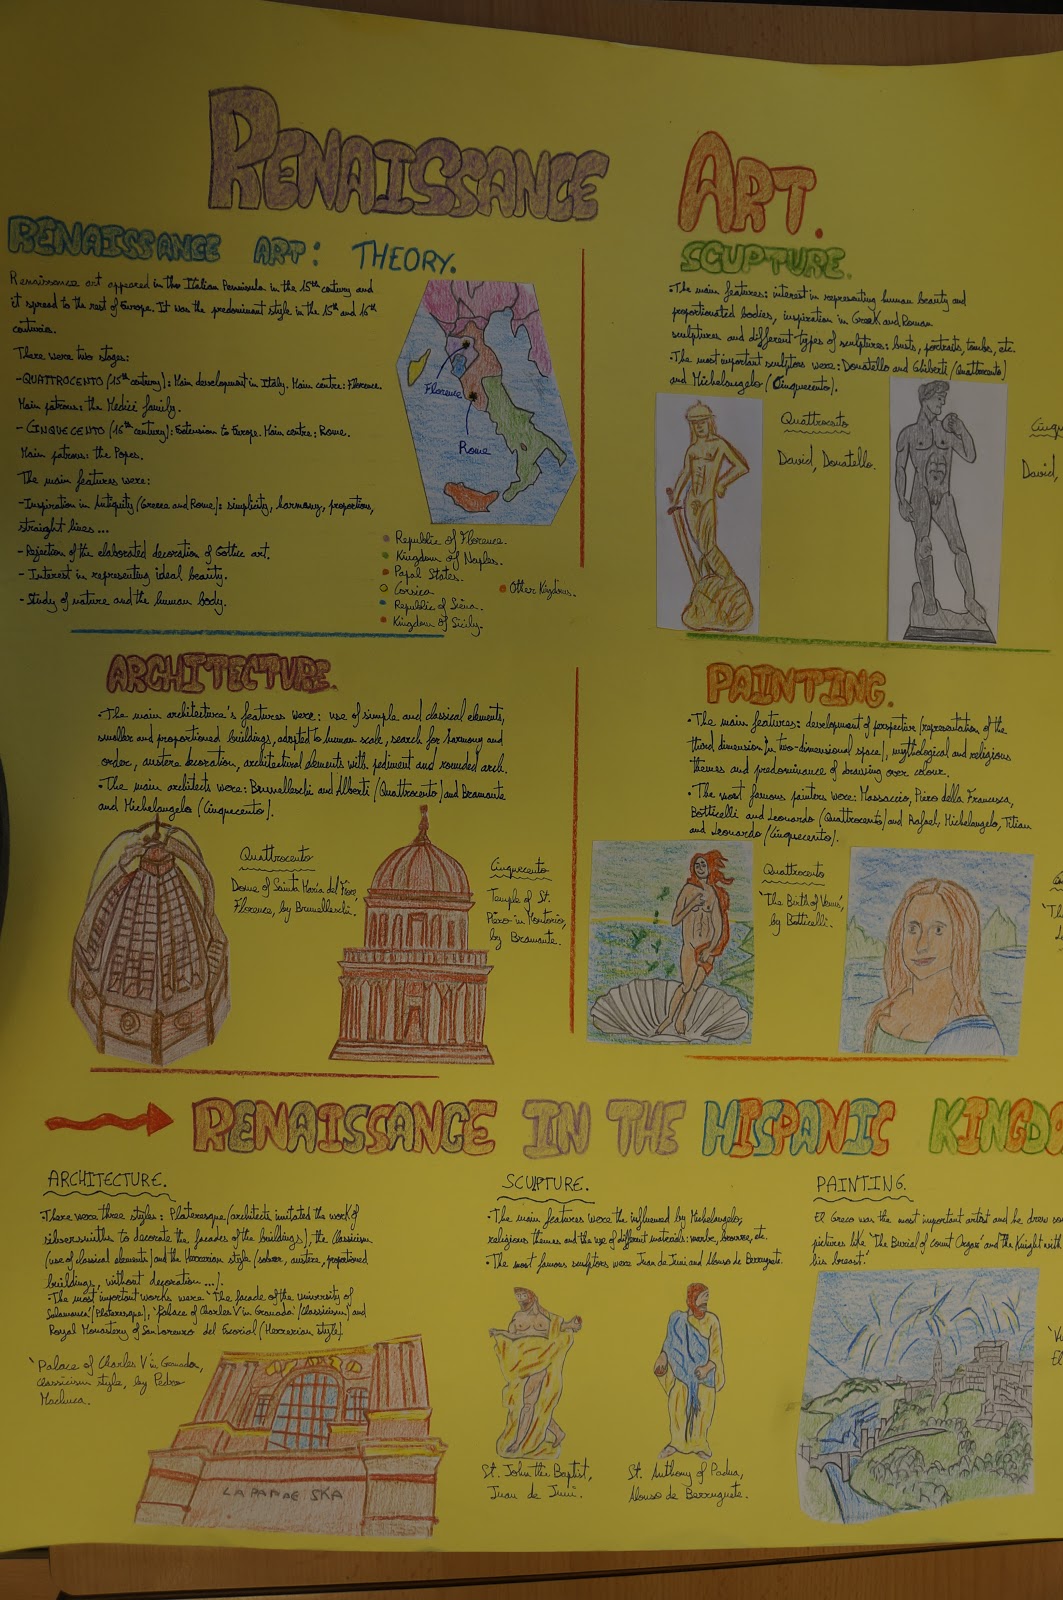 RENAISSANCE ART.
RENAISSANCE ART: THEORY.
Renaissance art appeared in the Italian Peninsula in the 15th century and
it spread to the rest of Europe. It was the predominant style in the 15th and 16th
centuries.
There were two stages:
-QUATTROCENTO (15th century): Main development in Italy. Main centre: Florence.
Main patrons: the Medici family.
- CINQUECENTO (16th century): Extension to Europe. Main centre: Rome.
Main patrons: the Popes.
The main features were:
-Inspiration in Antiquity (Greece and Rome): simplicity, harmony, proportions,
straight lines...
- Rejection of the elaborated decoration of Gothic art.
- Interest in representing ideal beauty.
- Study of nature and the human body.
Florence
Rome
Republic of Florence.
Kingdom of Naples.
Papal States.
Corsica
Other Kingdoms.
Republic of Siena.
Kingdom of Sicily.
SCUPTURE.
·The main features: interest in representing human beauty and
proportionated bodies, inspiration in Greek and Roman
sculptures and different types of sculptures: busts, portraits, tombs, etc.
·The most important sculptors were: Donatello and Ghiberti (Quattrocento)
and Michelangelo (Cinquecento).
Quattrocento
David, Donatello.
Cinqu
David,
ARCHITECTURE.
·The main architecture's features were: use of simple and classical elements,
smaller and proportioned buildings, adapted to human scale, search for harmony and
order, austere decoration, architectural elements with pediment and rounded arch.
·The main architects were: Brunelleschi and Alberti (Quattrocento) and Bramante
and Michelangelo (Cinquecento).
Quattrocento
Dome of Santa María del Fiore,
Florence, by Brunelleschi.
Cinquecento
Temple of St.
Piero in Montorio,
by Bramante.
PAINTING.
·The main features: development of perspective (representation of the
third dimension in two-dimensional space), mythological and religious
themes and predominance of drawing over colour.
·The most famous painters were: Massaccio, Piero della Francesca,
Botticelli and Leonardo (Quattrocento) and Rafael, Michelangelo, Titian
and Leonardo (Cinquecento).
Quattrocento
'The Birth of Venus',
by Botticelli.
RENAISSANCE IN THE HISPANIC KINGDO
ARCHITECTURE.
·There were three styles: Plateresque (architects imitated the work of
silversmiths to decorate the facades of the buildings), the Classicism
(use of classical elements) and the Herrerian style (sober, austere, proportioned
buildings, without decoration...).
·The most important works were 'The facade of the university of
Salamanca' (Plateresque), 'Palace of Charles V in Granada' (Classicism) and
Royal Monastery of San Lorenzo del Escorial (Herrerian style).
'Palace of Charles V in Granada,
Classicism style, by Pedro
Machuca.
SCULPTURE.
·The main features were the influenced by Michelangelo,
religious themes and the use of different materials: bronze, etc.
·The most famous sculptors were Juan de Juni and Alonso de Berruguete.
St. John the Baptist,
Juan de Juni.
St. Anthony of Padua,
Alonso de Berruguete.
PAINTING.
El Greco was the most important artist and he drew
pictures like 'The Burial of count Orgaz' and 'The Knight with
his breast'.